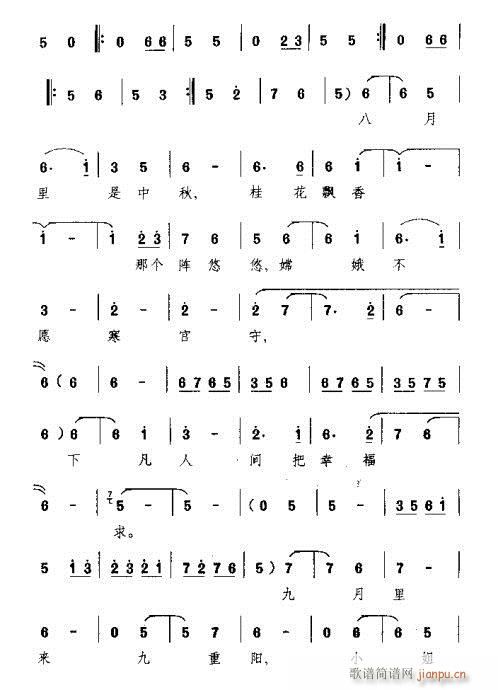 5 0 ‖: 0 6 6 | 5 5 | 0 2 3 | 5 5 :‖ 0 6 6
‖: 5 6 | 5 3 :‖ 5 2 | 7 6 | 5) 6 | 6 5
八 月
6· 1 | 3 5 | 6 - | 6· 6 | 6 1 | 1 -
里 是中秋, 桂花飘香
1 - | 1 2 3 | 7 6 | 5 6 | 6 1 | 6· 1
那个阵悠悠,嫦 娥不
3 - | 2 - | 2 - | 2 7 | 7· 2 | 6 -
愿 寒 宫 守,
6 ( 6 | 6 - | 6 7 6 5 | 3 5 6 | 6 7 6 5 | 3 5 7 5
6 ) 6 | 6 1 | 3 - | 2· 1 | 6· 2 | 7 6
下 凡人 间把幸福
6 - | 5 - | 5 - | (0 5 | 5 - | 3 5 6 1
求。
5 1 3 | 2 3 2 1 | 7 2 7 6 | 5) 7 | 7 6 | 7 -
九 月里
6 - | 0 5 | 5 7 | 7 - | 0 5 | 5 6
来 九 重阳, 小 姐
歌谱简谱网
jianpu.cn